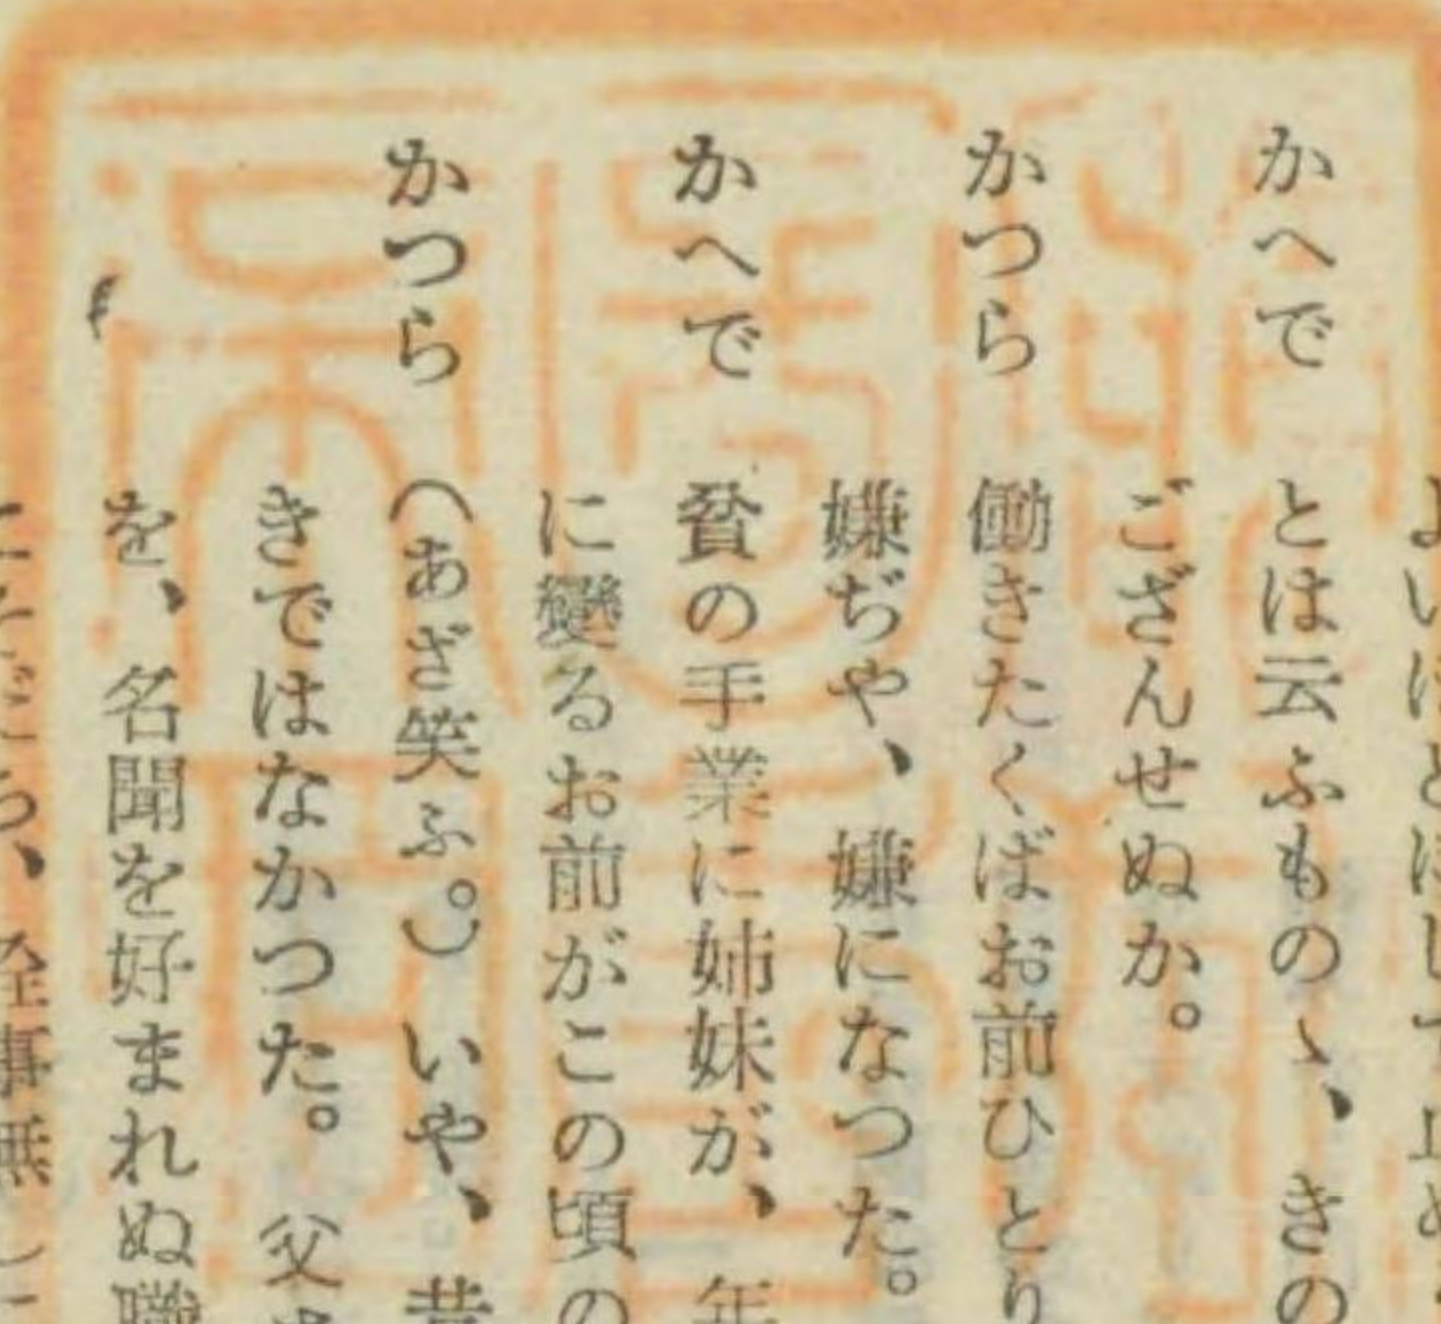 よいほどにして止め
かへで　とは云ふものゝ、きの
ござんせぬか。
かつら　働きたくばお前ひとり
嫌ぢや、嫌になつた。
かへで　貧の手業に姉妹が、年
に變るお前がこの頃の
かつら　（あざ笑ふ。）いや、昔
きではなかつた。父さ
を、名聞を好まれぬ職